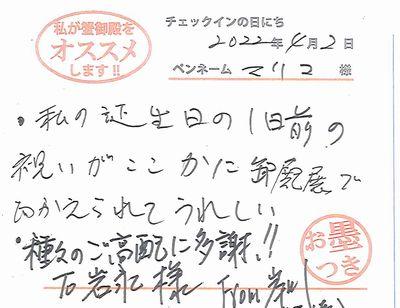 私が蟹御殿を
オススメ
します!!
チェックインの日にち
2022年4月2日
ペンネーム マリコ 様
・私の誕生日の1日前の
祝いがここかに卸殿展で
むかえられてうれしい
・種々のご高配に多謝!!
お墨
つき
石岩永様 From